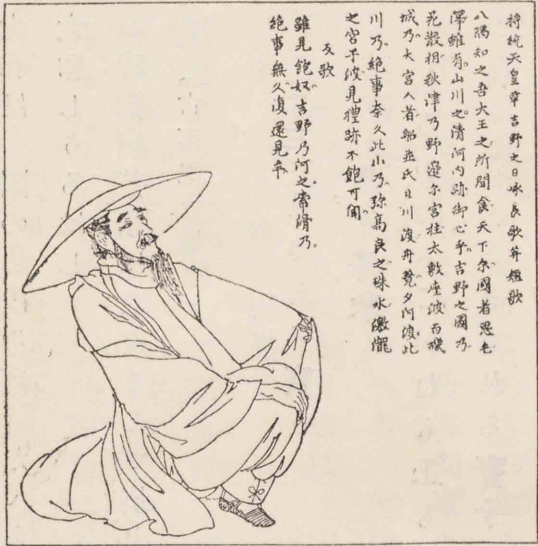 持統天皇幸吉野之日承長歌并短歌
八隅知之吾大王之所聞食天下尓國者思毛
澤雖有山川之清河内跡御心乎吉野之國乃
花散相秋津乃野邊尓宮柱太敷座波百磯
城乃大宮人者船並氏旦川渡舟競夕河渡此
川乃絶事奈久此山乃弥高良之珠水激瀧
之宮子波見禮跡不飽可聞
反歌
雖見飽奴吉野乃河之常滑乃
絶事無久復還見牟